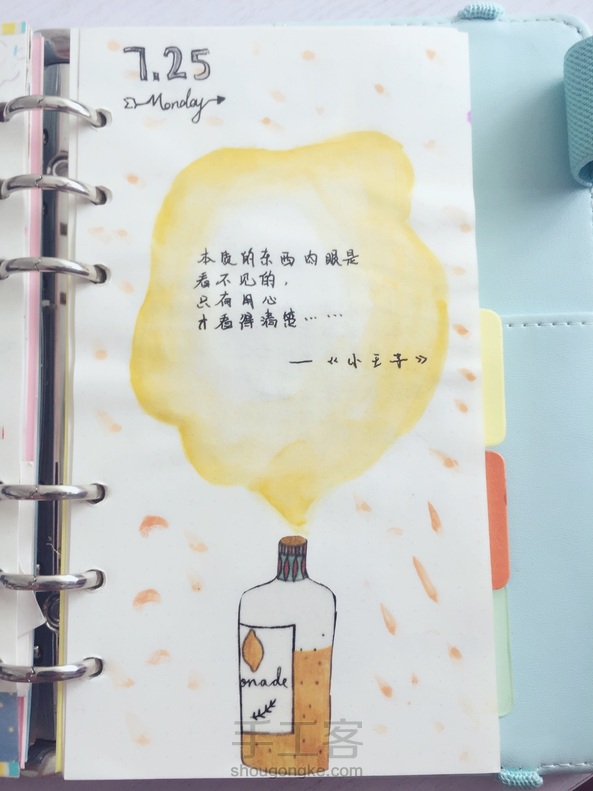 7.25
Monday
本质的东西肉眼是
看不见的，
只有用心
才看得清楚……
—《小王子》
onade
手工客
shougongke.com